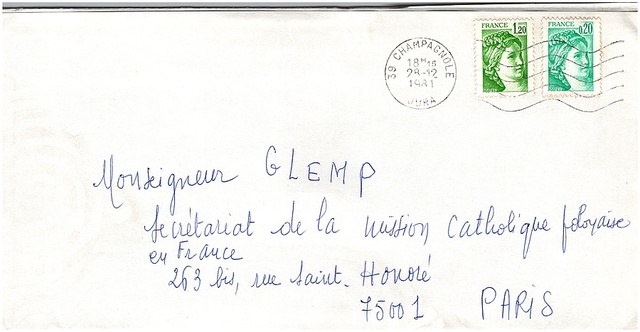 FRANCE 1,20
FRANCE 0,20
39 CHAMPAGNOLE
18H15
28-12
1981
JURA
Monseigneur GLEMP
Secrétariat de la mission Catholique polonaise
en France
263 bis, rue Saint. Honoré
75001 PARIS